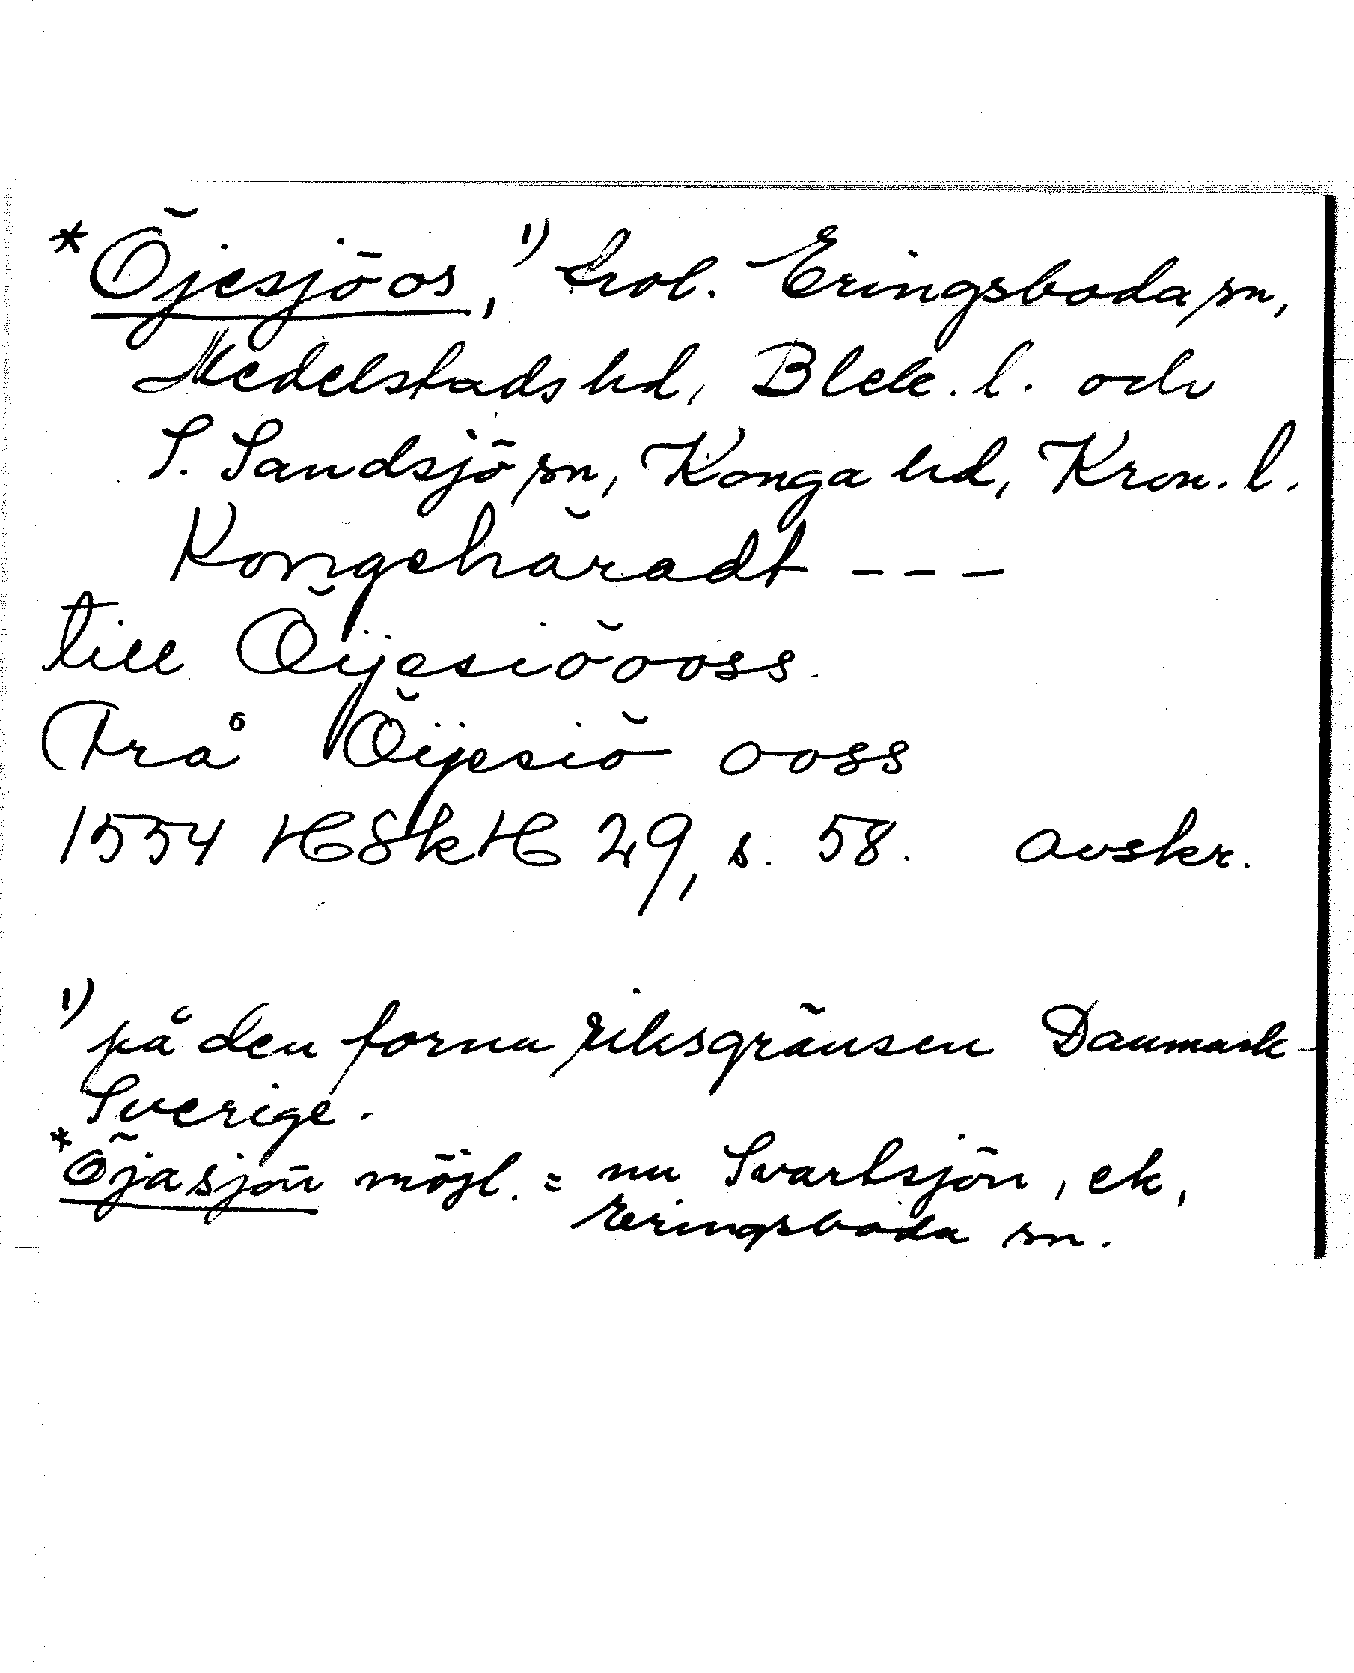 *Öjesjöos,¹⁾ trol. Eringsboda sn,
Medelstads hd, Blek. l. och
S. Sandsjö sn, Konga hd, Kron. l.
Kongehäradt ---
till Öijesiöooss.
Frå Öijesiö ooss
1554 HSkH 29, s. 58. avskr.
¹⁾ på den forna riksgränsen Danmark-
Sverige.
*Öjasjön möjl. = nu Svartsjön, ek,
Eringsboda sn.